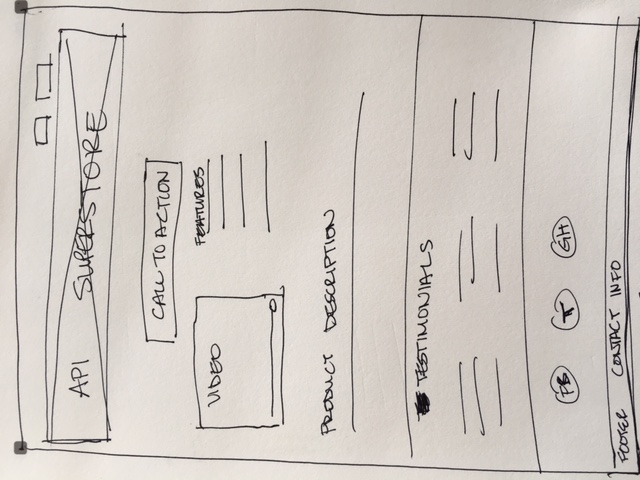 API SUPERSTORE
CALL TO ACTION
VIDEO
FEATURES
PRODUCT DESCRIPTION
TESTIMONIALS
FB T GH
FOOTER CONTACT INFO